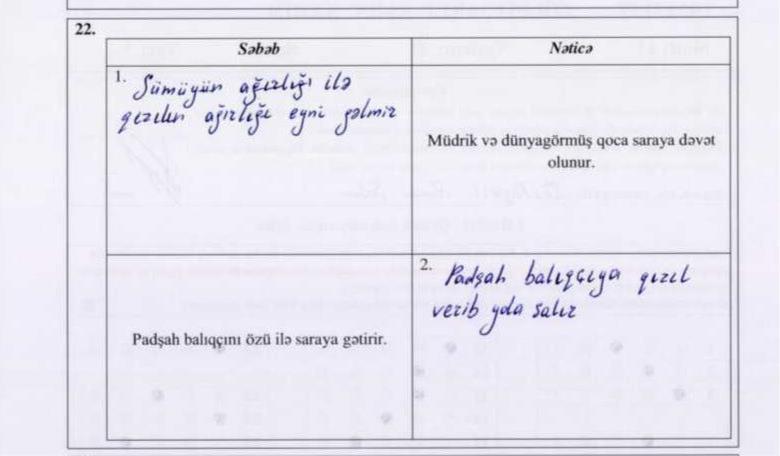 22.
Səbəb
Nəticə
1. Sümüyün ağırlığı ilə
qızılın ağırlığı eyni gəlmir
Müdrik və dünyagörmüş qoca saraya dəvət
olunur.
Padşah balıqçını özü ilə saraya gətirir.
2. Padşah balıqçıya qızıl
verib yola salır